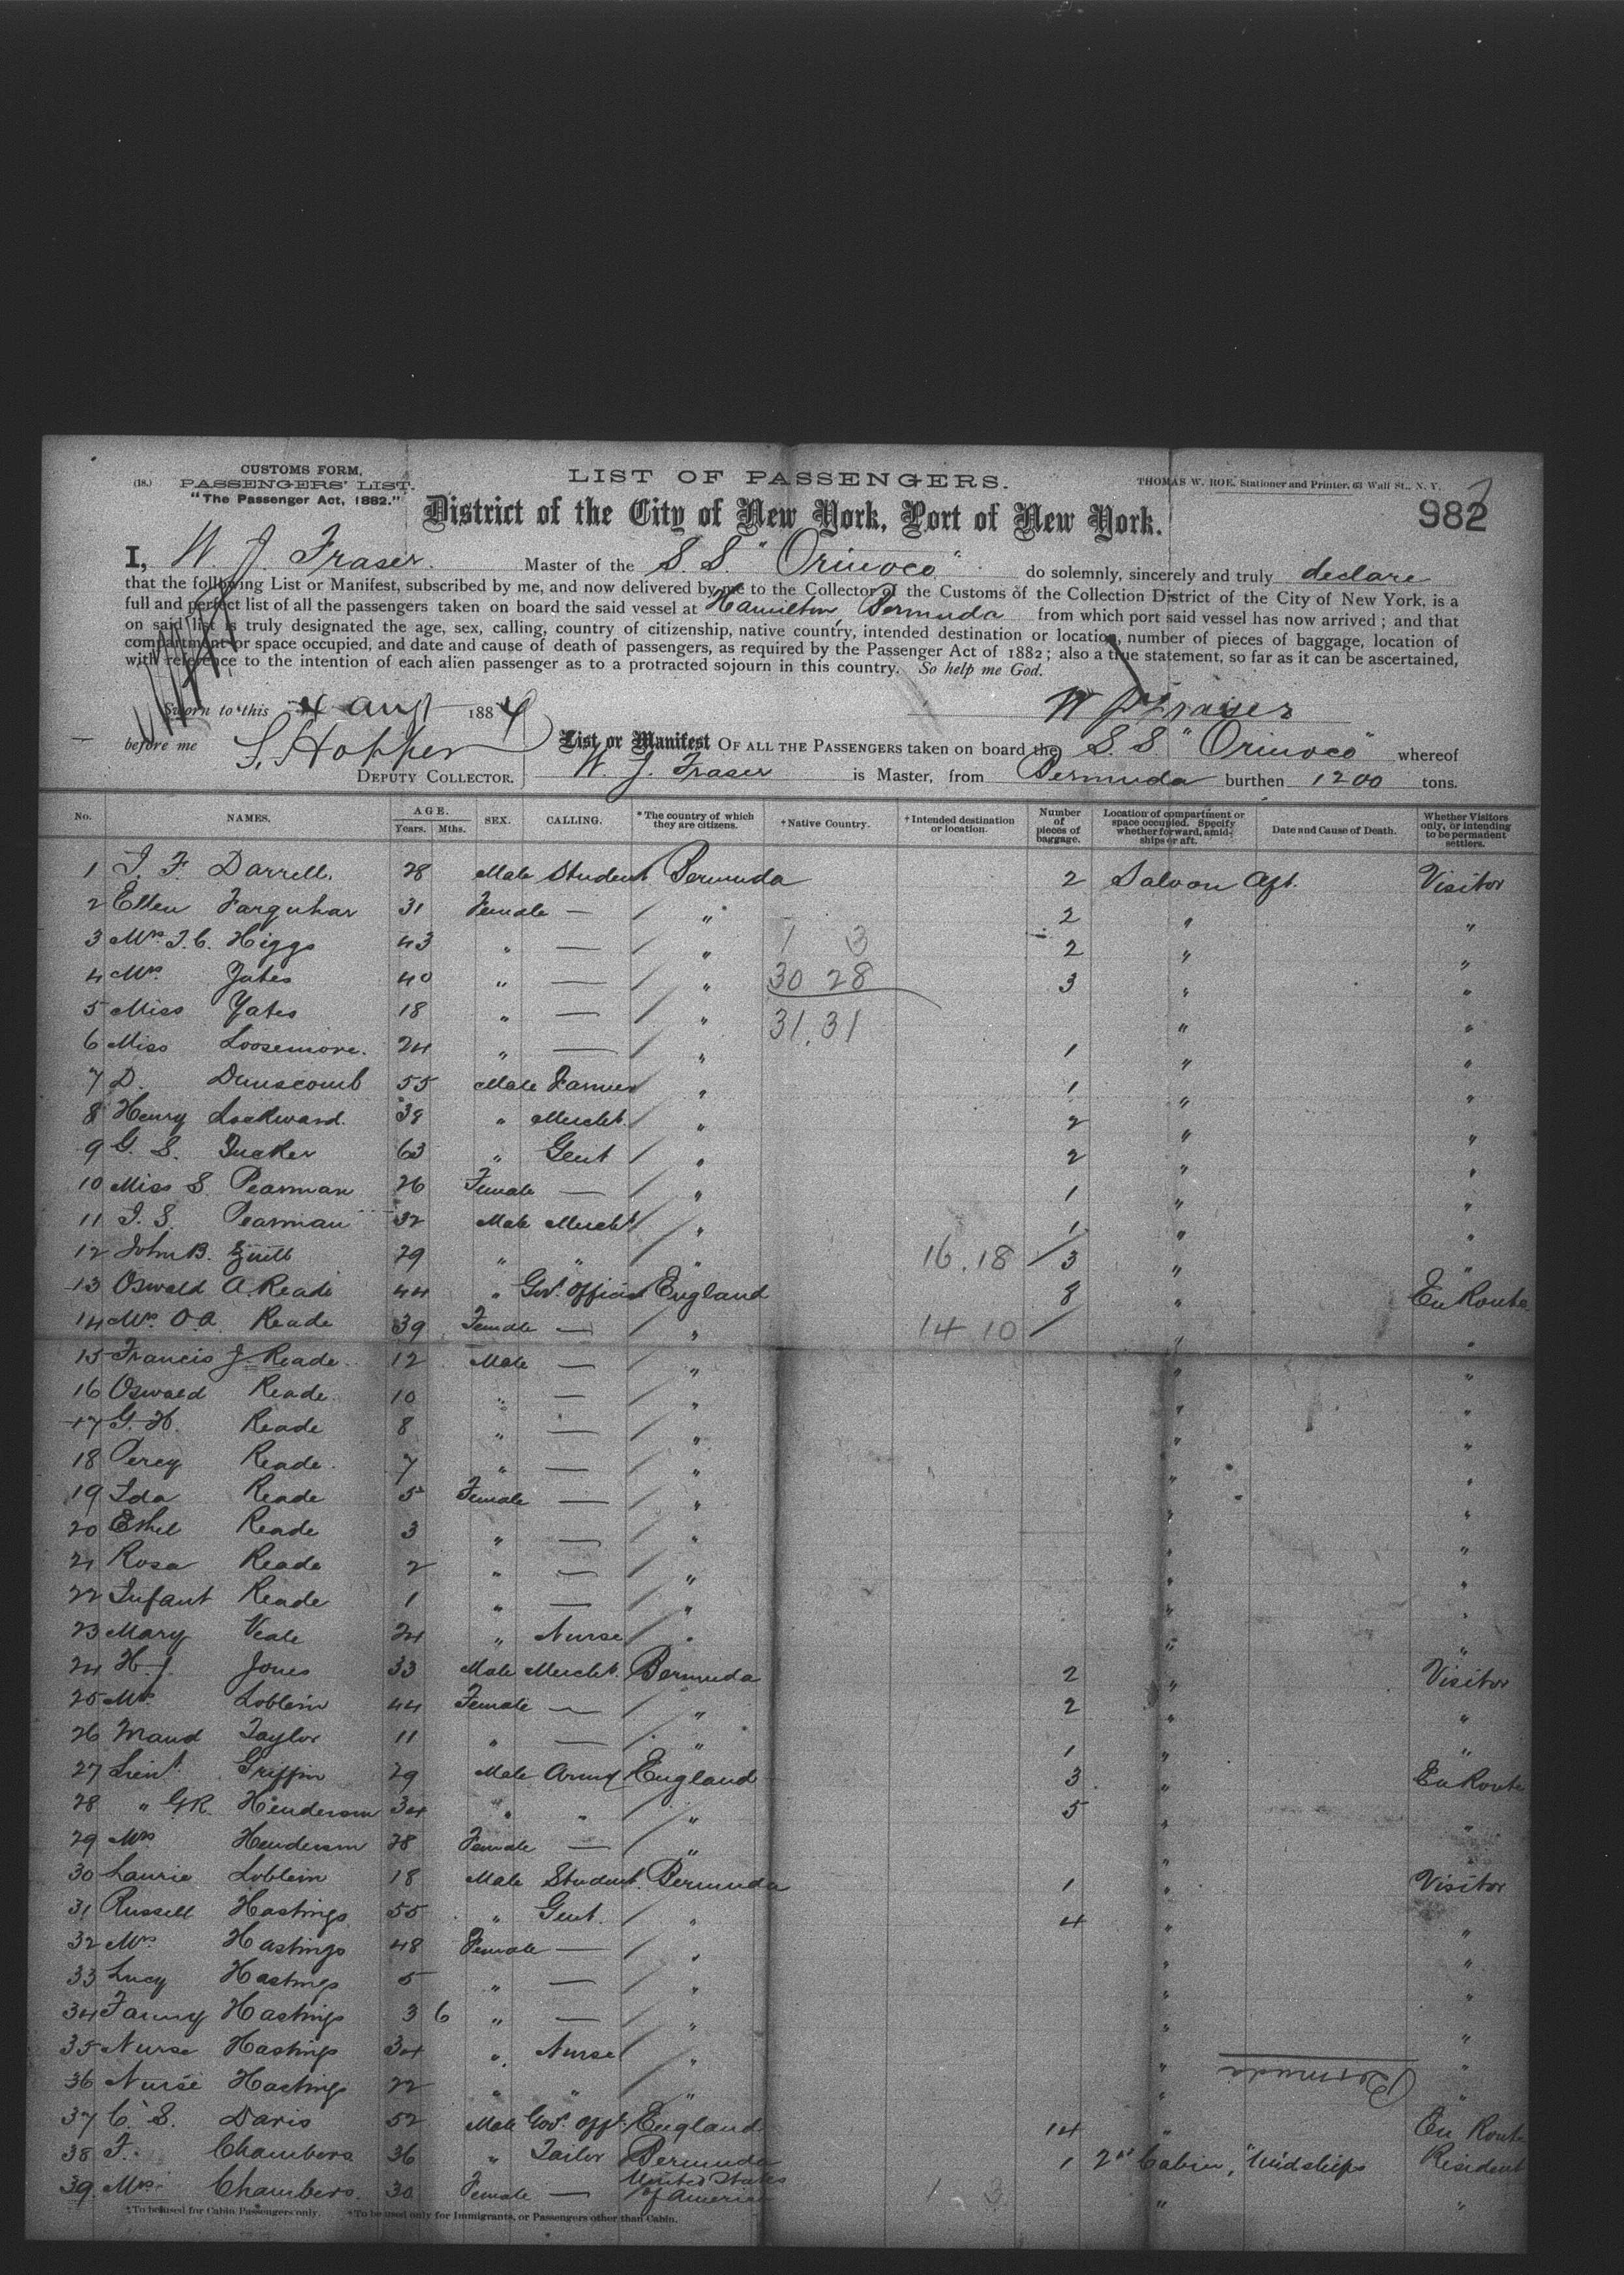 CUSTOMS FORM,
(18.) PASSENGERS' LIST.
"The Passenger Act, 1882."
LIST OF PASSENGERS.
THOMAS W. ROE, Stationer and Printer, 63 Wall St., N. Y.
982
District of the City of New York, Port of New York.
I, W. J. Fraser. Master of the S. S. "Orinoco" do solemnly, sincerely and truly declare
that the following List or Manifest, subscribed by me, and now delivered by me to the Collector of the Customs of the Collection District of the City of New York, is a
full and perfect list of all the passengers taken on board the said vessel at Hamilton, Bermuda from which port said vessel has now arrived; and that
on said list is truly designated the age, sex, calling, country of citizenship, native country, intended destination or location, number of pieces of baggage, location of
compartment or space occupied, and date and cause of death of passengers, as required by the Passenger Act of 1882; also a true statement, so far as it can be ascertained,
with reference to the intention of each alien passenger as to a protracted sojourn in this country. So help me God.
Sworn to this 4 Aug 1884 W J Fraser
before me S. Hopper List or Manifest OF ALL THE PASSENGERS taken on board the S. S "Orinoco" whereof
DEPUTY COLLECTOR. W. J. Fraser is Master, from Bermuda burthen 1200 tons.
No. NAMES. AGE. Years. Mths. SEX. CALLING. *The country of which they are citizens. †Native Country. †Intended destination or location. Number of pieces of baggage. Location of compartment or space occupied. Specify whether forward, amidships or aft. Date and Cause of Death. Whether Visitors only, or intending to be permanent settlers.
1 J. F. Darrell. 28 Male Student Bermuda 2 Saloon Aft. Visitor
2 Ellen Farquhar 31 Female — " 2 " "
3 Mrs. J. C. Higgs 43 " — " 1 3 2 " "
4 Mrs. Yates 40 " — " 30 28 3 " "
5 Miss Yates 18 " — " 31.31 " "
6 Miss Loosemore. 24 " — " 1 " "
7 D. Dunscomb 55 Male Farmer " 1 " "
8 Henry Lockward. 38 " Mercht. " 2 " "
9 G. S. Tucker 63 " Gent " 2 " "
10 Miss S. Pearman 26 Female — " 1 " "
11 J. S. Pearman 32 Male Mercht " 1 " "
12 John B. Zuill 29 " " " 16.18 3 " "
13 Oswald A. Reade 44 " Govt. Official England 8 " En Route
14 Mrs. O.A. Reade 39 Female — " 14 10 " "
15 Francis J. Reade. 12 Male — " " "
16 Oswald Reade. 10 " — " " "
17 G. H. Reade 8 " — " " "
18 Percy Reade. 7 " — " " "
19 Ida Reade 5 Female — " " "
20 Ethel Reade 3 " — " " "
21 Rosa Reade 2 " — " " "
22 Infant Reade 1 " — " " "
23 Mary Veale 24 " Nurse " " "
24 H. J. Jones 33 Male Mercht. Bermuda 2 " Visitor
25 Mrs Loblein 44 Female — " 2 " "
26 Maud Taylor 11 " — " 1 " "
27 Lieut. Griffin 29 Male Army England 3 " En Route
28 " G.R. Henderson 34 " " " 5 " "
29 Mrs Henderson 28 Female — " " "
30 Laurie Loblein 18 Male Student. Bermuda 1 " Visitor
31 Russell Hastings 55 " Gent. " 4 " "
32 Mrs. Hastings 48 Female — " " "
33 Lucy Hastings 5 " — " " "
34 Fanny Hastings 3 6 " — " " "
35 Nurse Hastings 34 " Nurse " " "
36 Nurse Hastings 22 " " " " "
Bermuda
37 C. S. Davis 52 Male Govt. Offl. England 14 " En Route
38 F. Chambers 36 " Tailor Bermuda 1 2nd Cabin, "Midships Resident
39. Mrs. Chambers. 30 Female — United States of America 1 3 " "
*To be used for Cabin Passengers only. †To be used only for Immigrants, or Passengers other than Cabin.